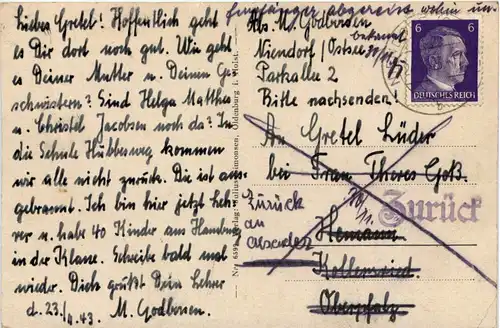 Liebes Gretel! Hoffentlich geht
es Dir dort noch gut. Wie geht
es Deiner Mutter u. Deinen Ge-
schwistern? Sind Helga Matthe
u. Christel Jacobsen noch da? In
die Schule Hübbesweg kommen
wir alle nicht zurück. Die ist aus-
gebrannt. Ich bin hier jetzt Leh-
rer u. habe 40 Kinder aus Hamburg
in der Klasse. Schreibe bald mal
wieder. Dich grüßt Dein Lehrer
d. 23./9.43. M. Godbersen.
Verlag: Julius Simonsen, Oldenburg i. Holst.
Empfänger abgereist wohin un-
bekannt
Abs. M. Godbersen
Niendorf/Ostsee
Parkallee 2
Bitte nachsenden!
6 6
DEUTSCHES REICH
An Gretel Lüder
bei Frau Theres Goß
Zurück
an
Absender
Zurück
Hemann
Oberpfalz